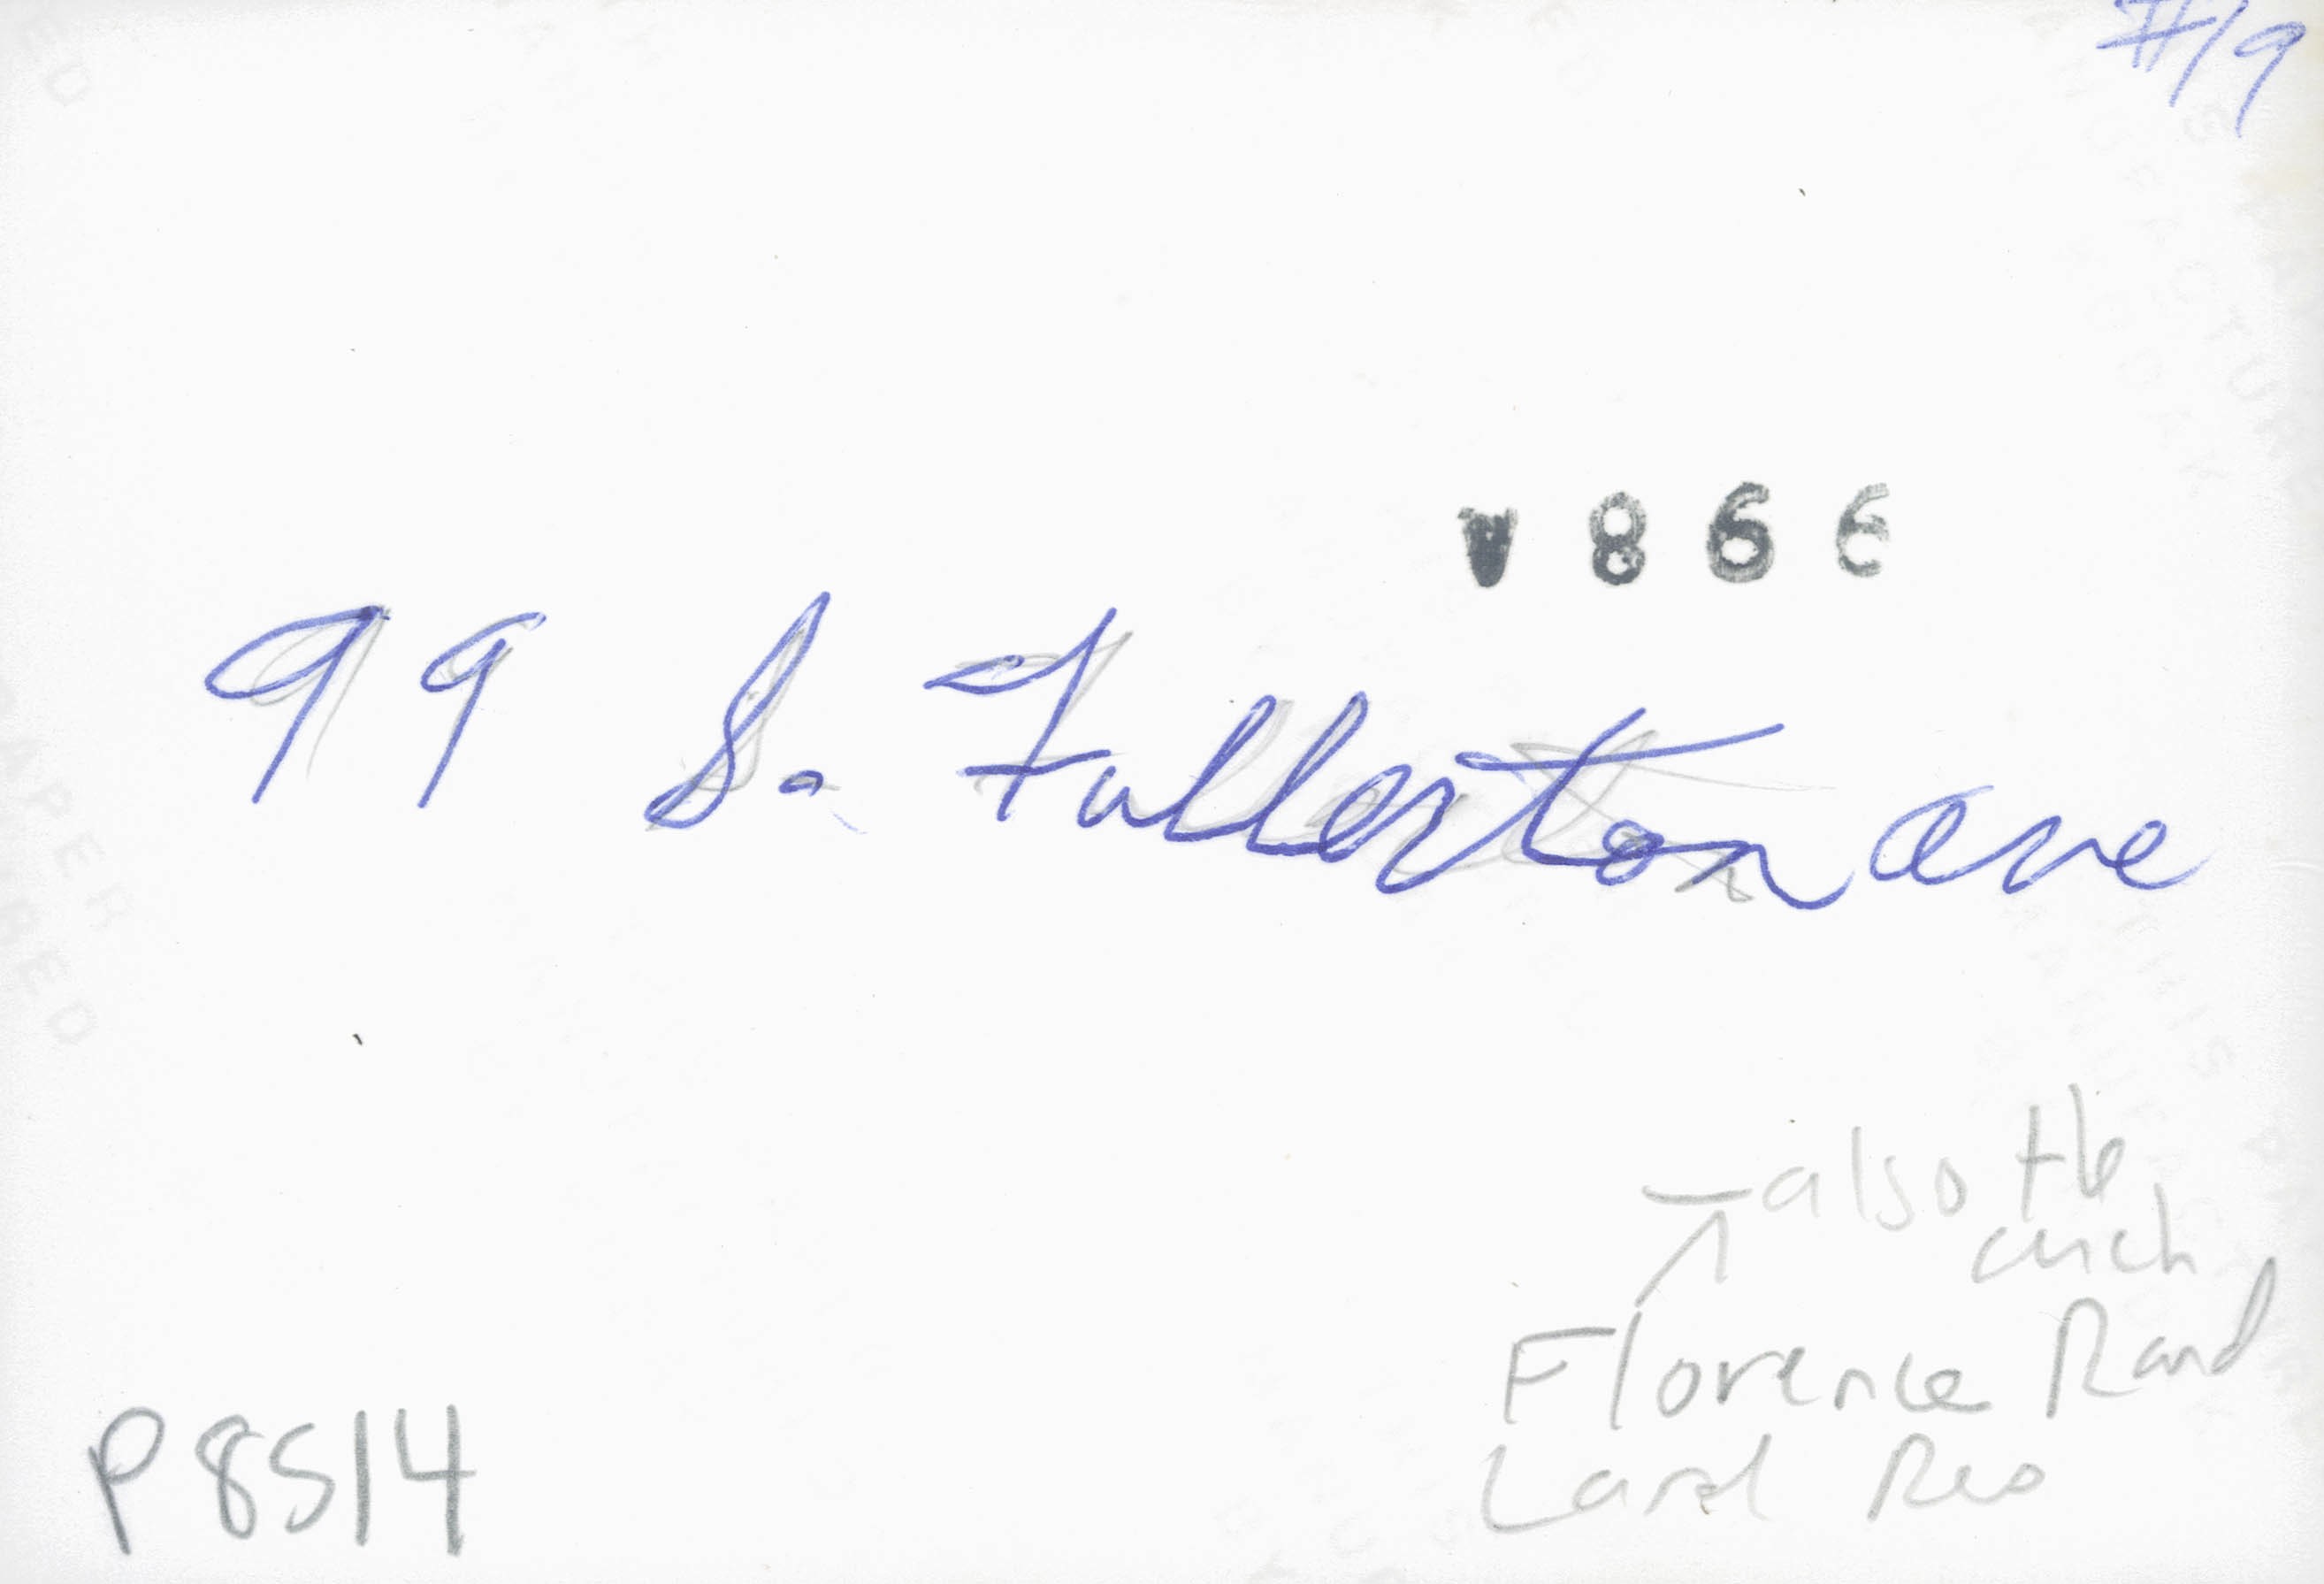 #19
866
99 So. Fullerton ave
also the
Florence Rand
Lard Res
P8514